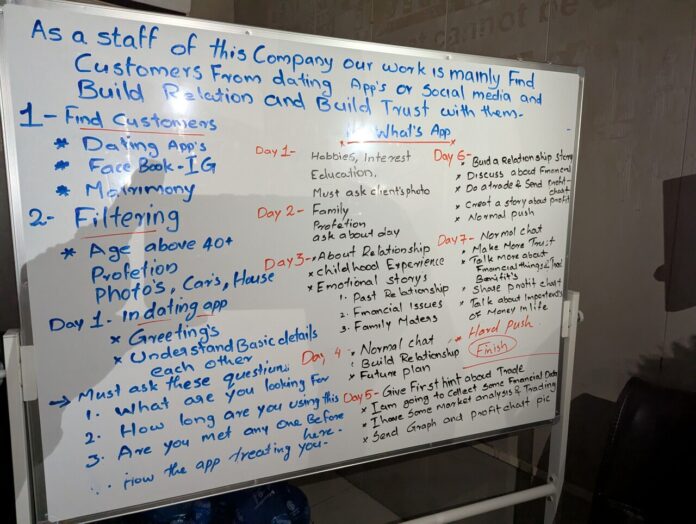 As a staff of this Company our work is mainly Find
Customers From dating App's or Social media and
Build Relation and Build Trust with them-
1- Find Customers
* Dating App's
* Face Book - IG
* Matrimony
2- Filtering
* Age above 40+
Profetion
Photo's, Car's, House
Day 1. In dating app
* Greeting's
* Understand Basic details
each other
→ Must ask these question:
1. What are you looking for
2. How long are you using this
3. Are you met any one Before
here.
How the app treating you-
What's App
Day 1- Habbies, Interest
Education,
Must ask client's photo
Day 2- Family
Profetion
ask about day
Day 3- * About Relationship
* Childhood Experience
* Emotional storys
1. Past Relationship
2. Financial Issues
3. Family Maters
Day 4 * Normal chat
Build Relationship
* Future plan
Day 5- Give First hint about Trade
* I am going to Collect Some Financial Data
* I have Some Market analysis & Trading
* Send Graph and profit chart pic
Day 6- * Build a Relationship story
* Discuss about Financial
* Do a trade & Send profit-
chart
* Creat a story about profit
* Normal push
Day 7- * Normal chat
* Make More Trust
* Talk more about
Financial things & Trade
Benifit's
* Share profit chart
* Talk about Importents
of Money in life
* Hard Push.
Finish
cannot be